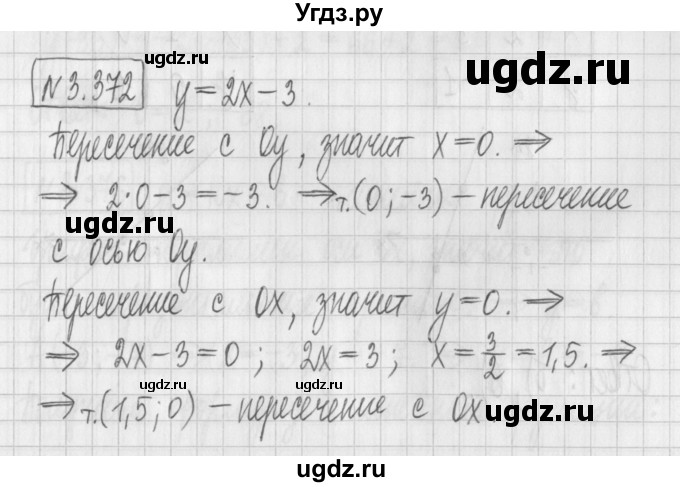 Угдз.ру
ugdz.ru ugdz.ru
N 3.372 y = 2x - 3.
Пересечение с Oy, значит x = 0. ⇒
⇒ 2·0 - 3 = -3. ⇒ т.(0; -3) - пересечение
ugdz.ru
с осью Oy.
ugdz.ru
Пересечение с Ox, значит y = 0. ⇒
⇒ 2x - 3 = 0 ; 2x = 3 ; x = 3/2 = 1,5. ⇒
ugdz.ru ugdz.ru
⇒ т.(1,5; 0) - пересечение с Ox
ugdz.ru
ugdz.ru